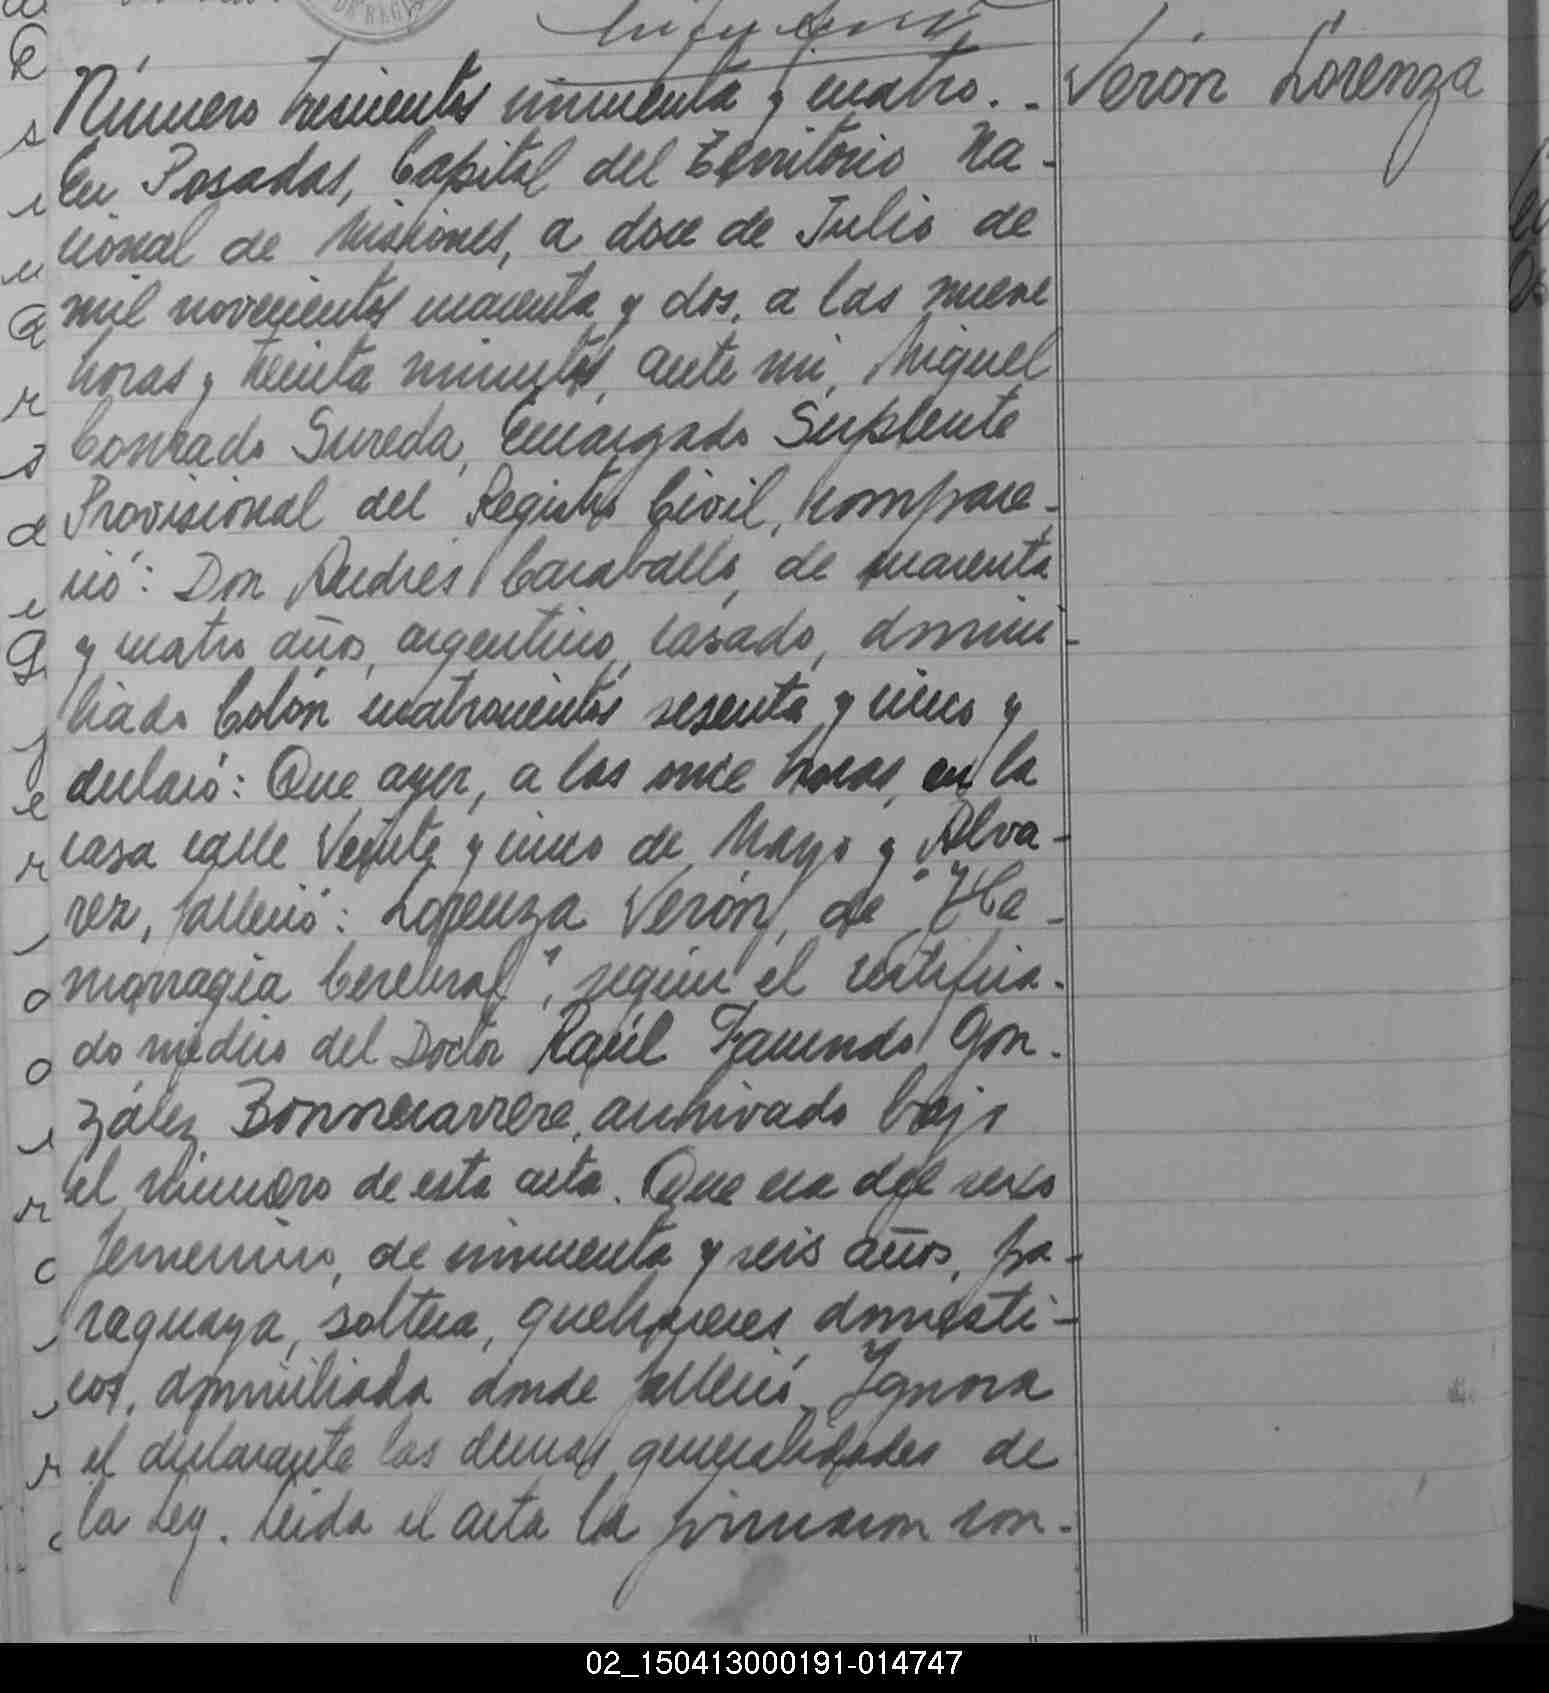 Número trescientos cincuenta y cuatro. - Verón Lorenza
En Posadas, Capital del Territorio Na-
cional de Misiones, a doce de Julio de
mil novecientos cuarenta y dos, a las nueve
horas y treinta minutos, ante mi, Miguel
Conrado Sureda, Encargado Suplente
Provisional del Registro Civil, compare-
ció: Don Andrés Caraballo, de cuarenta
y cuatro años, argentino, casado, domici-
liado Colón cuatrocientos sesenta y cinco y
declaró: Que ayer, a las once horas, en la
casa calle Veinte y cinco de Mayo y Alva-
rez, falleció: Lorenza Verón, de "He-
morragia Cerebral", según el certifica-
do médico del Doctor Raúl Facundo Gon-
zález Bonnecarrere, archivado bajo
el número de esta acta. Que era del sexo
femenino, de cincuenta y seis años, pa-
raguaya, soltera, quehaceres domésti-
cos, domiciliada donde falleció. Ignora
el declarante las demas generalidades de
la Ley. Leida el acta la firmaron con-
02_150413000191-014747